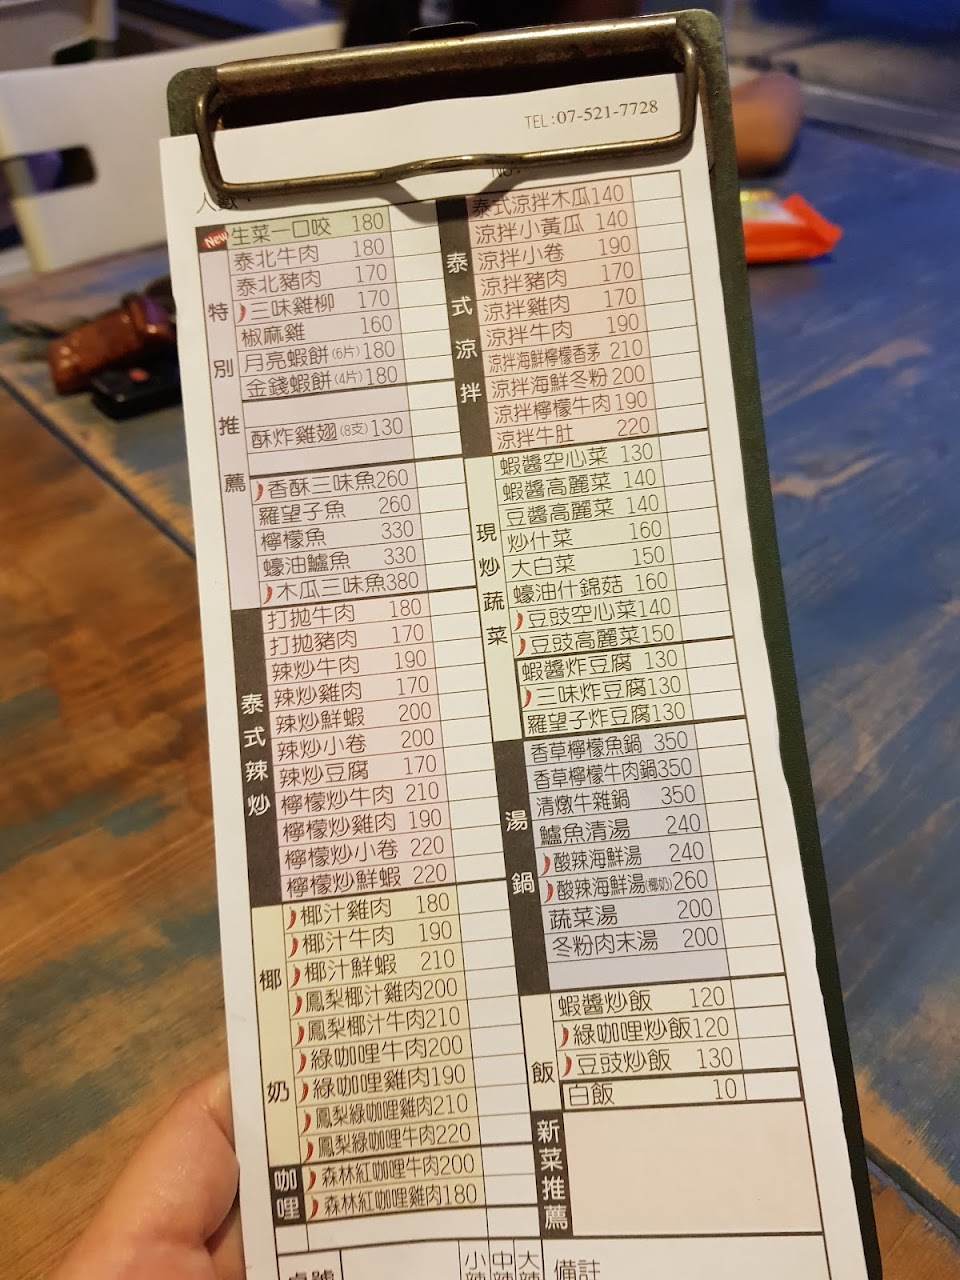 TEL : 07-521-7728
New 生菜一口咬 180
特別推薦
泰北牛肉 180
泰北豬肉 170
三味雞柳 170
椒麻雞 160
月亮蝦餅(6片) 180
金錢蝦餅(4片) 180
酥炸雞翅(8支) 130
香酥三味魚 260
羅望子魚 260
檸檬魚 330
蠔油鱸魚 330
木瓜三味魚 380
泰式辣炒
打拋牛肉 180
打拋豬肉 170
辣炒牛肉 190
辣炒雞肉 170
辣炒鮮蝦 200
辣炒小卷 200
辣炒豆腐 170
檸檬炒牛肉 210
檸檬炒雞肉 190
檸檬炒小卷 220
檸檬炒鮮蝦 220
椰奶
椰汁雞肉 180
椰汁牛肉 190
椰汁鮮蝦 210
鳳梨椰汁雞肉 200
鳳梨椰汁牛肉 210
綠咖哩牛肉 200
綠咖哩雞肉 190
鳳梨綠咖哩雞肉 210
鳳梨綠咖哩牛肉 220
咖哩
森林紅咖哩牛肉 200
森林紅咖哩雞肉 180
泰式涼拌
泰式涼拌木瓜 140
涼拌小黃瓜 140
涼拌小卷 190
涼拌豬肉 170
涼拌雞肉 170
涼拌牛肉 190
涼拌海鮮檸檬香茅 210
涼拌海鮮冬粉 200
涼拌檸檬牛肉 190
涼拌牛肚 220
現炒蔬菜
蝦醬空心菜 130
蝦醬高麗菜 140
豆醬高麗菜 140
炒什菜 160
大白菜 150
蠔油什錦菇 160
豆豉空心菜 140
豆豉高麗菜 150
蝦醬炸豆腐 130
三味炸豆腐 130
羅望子炸豆腐 130
湯鍋
香草檸檬魚鍋 350
香草檸檬牛肉鍋 350
清燉牛雜鍋 350
鱸魚清湯 240
酸辣海鮮湯 240
酸辣海鮮湯(椰奶) 260
蔬菜湯 200
冬粉肉末湯 200
飯
蝦醬炒飯 120
綠咖哩炒飯 120
豆豉炒飯 130
白飯 10
新菜推薦
小辣 中辣 大辣 備註